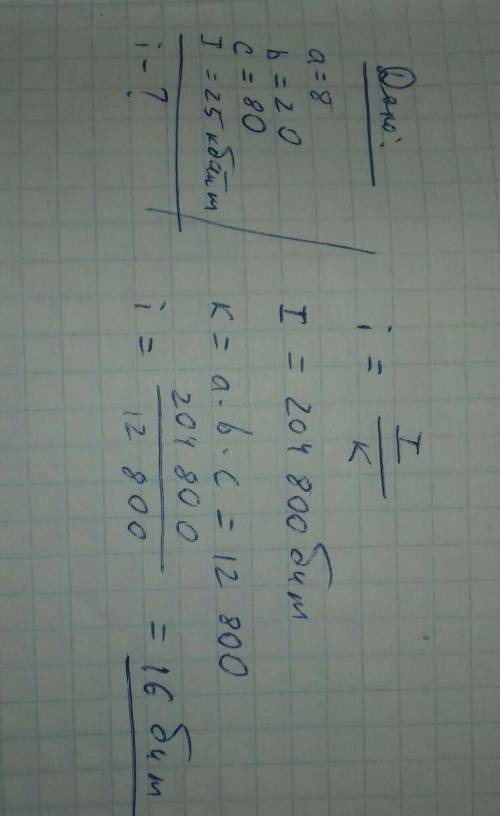 Дано:
a = 8
b = 20
c = 80
I = 25 кбайт
i - ?
i = I / K
I = 204 800 бит
K = a · b · c = 12 800
i = 204 800 / 12 800 = 16 бит